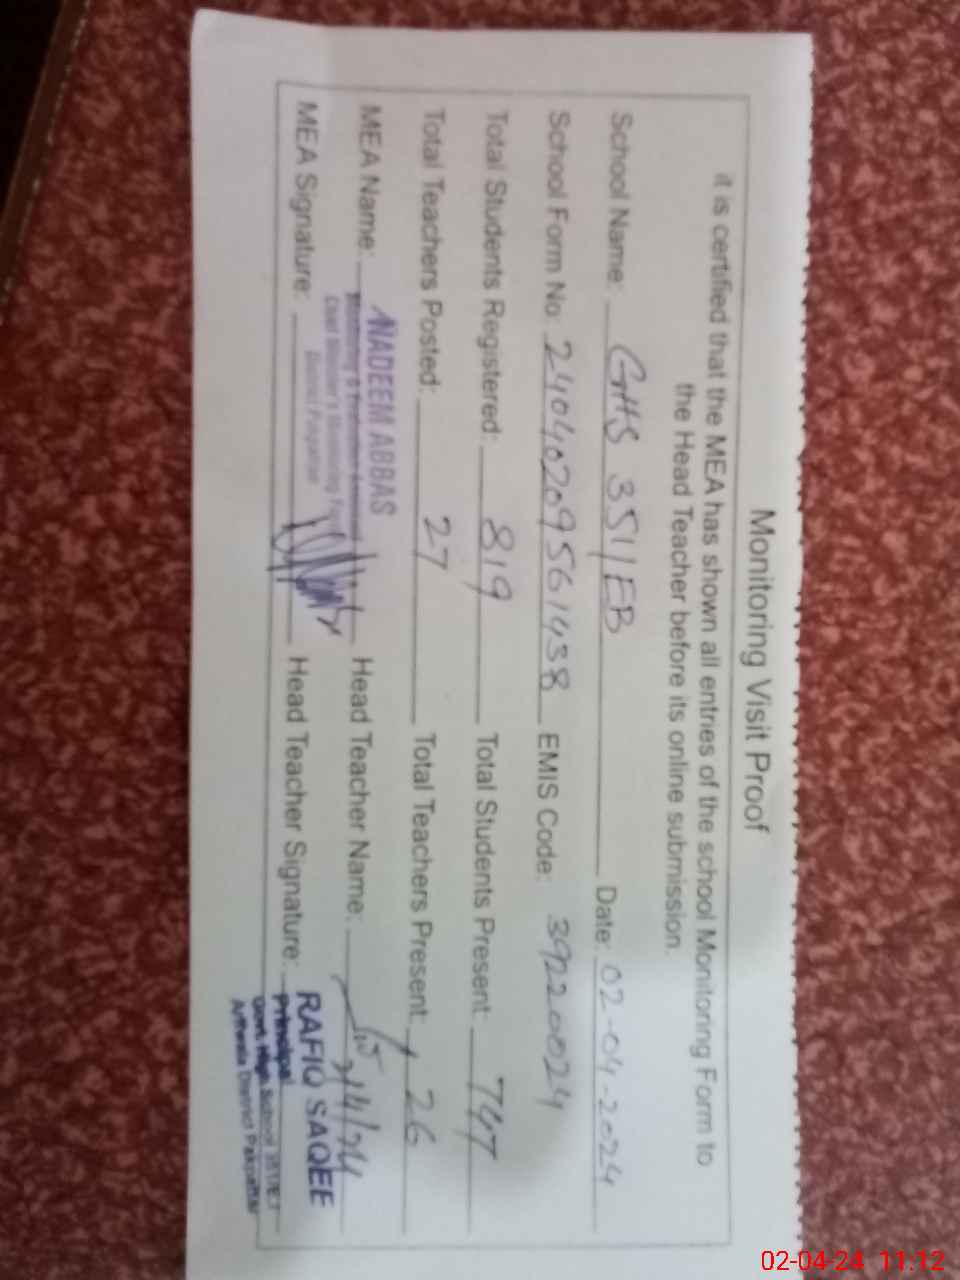 Monitoring Visit Proof
it is certified that the MEA has shown all entries of the school Monitoring Form to
the Head Teacher before its online submission.
School Name: GHS 351/EB Date: 02-04-2024
School Form No: 24040209561438 EMIS Code: 39220024
Total Students Registered: 819 Total Students Present: 747
Total Teachers Posted: 27 Total Teachers Present: 26
MEA Name: NADEEM ABBAS Head Teacher Name: 2/4/24
Monitoring & Evaluation Assistant
Chief Minister's Monitoring Force
District Pakpattan
MEA Signature: Head Teacher Signature: RAFIQ SAQEE
Principal
Govt. High School 351/E.B
Arifwala District Pakpattan
02-04-24 11:12